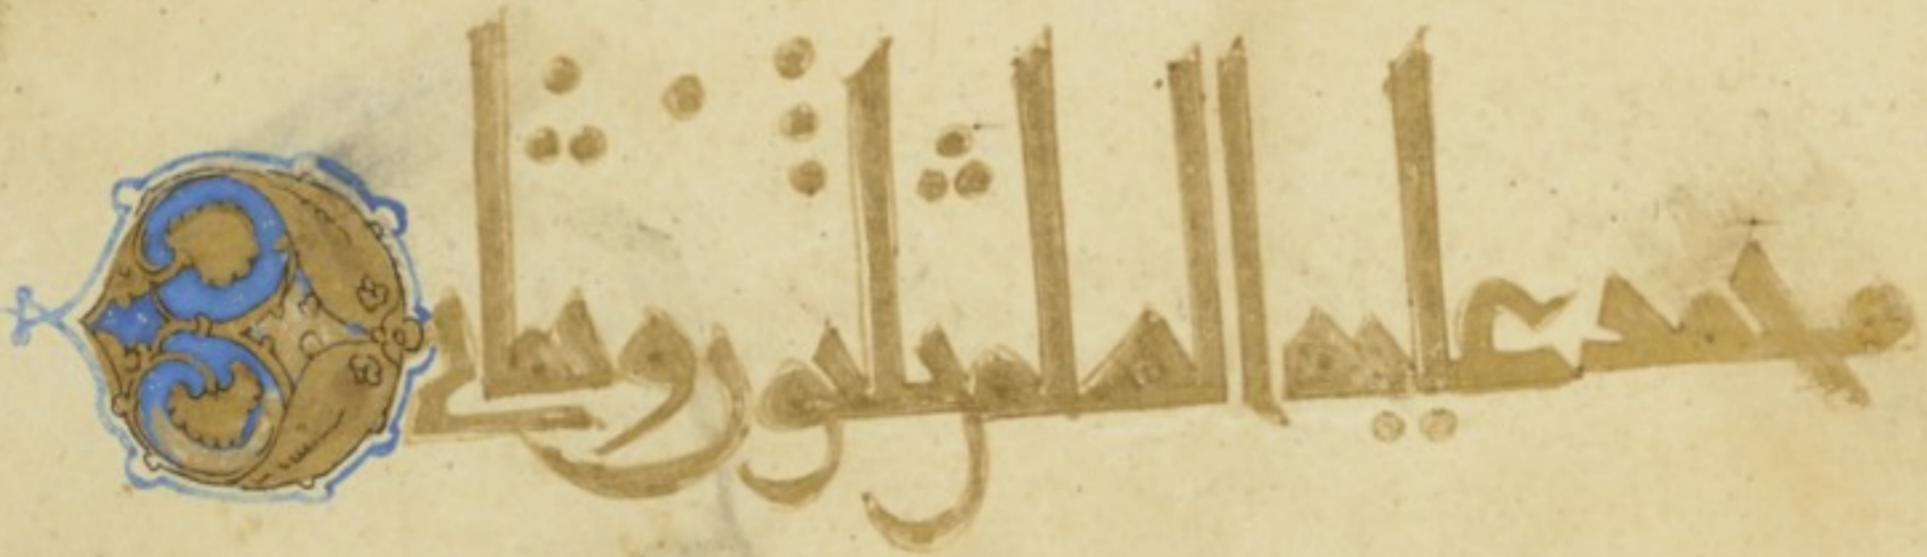 محمد عليه السلم ثلثون وثماني